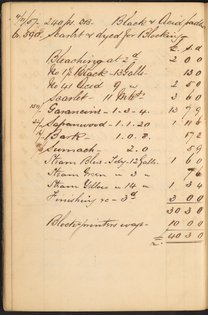 240 pcs. Black & Acid
6.390. Scarlet & dyed for Blocking
£ s d
Bleaching at 2d 2 0 0
No 17 Black 13 Galls 1 3 0
No 41 Acid 2 5 0
Scarlet 3 6 0
Garancin 1. 3. 4 13 7 9
Sapanwood 1. 1. 20 1 11 6
Bark 1. 0. 2 17 2
Sumach 2. 0 5 9
Steam Blue 12 Galls 1 6 0
Steam Green 3 7 6
Steam Yellow 14 1 3 4
Finishing 3d 3 0 0
30 3 0
Blockprinters wage 10 0 0
£ 40 3 0